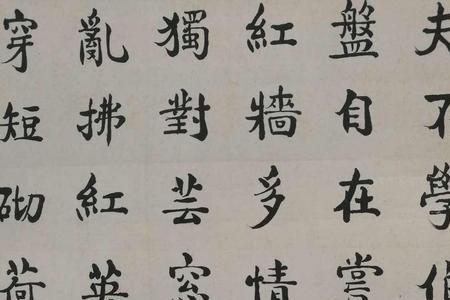 夫不學
盤自在嘗
紅牆多情
獨對芸窓
亂拂紅英
穿短砌荷